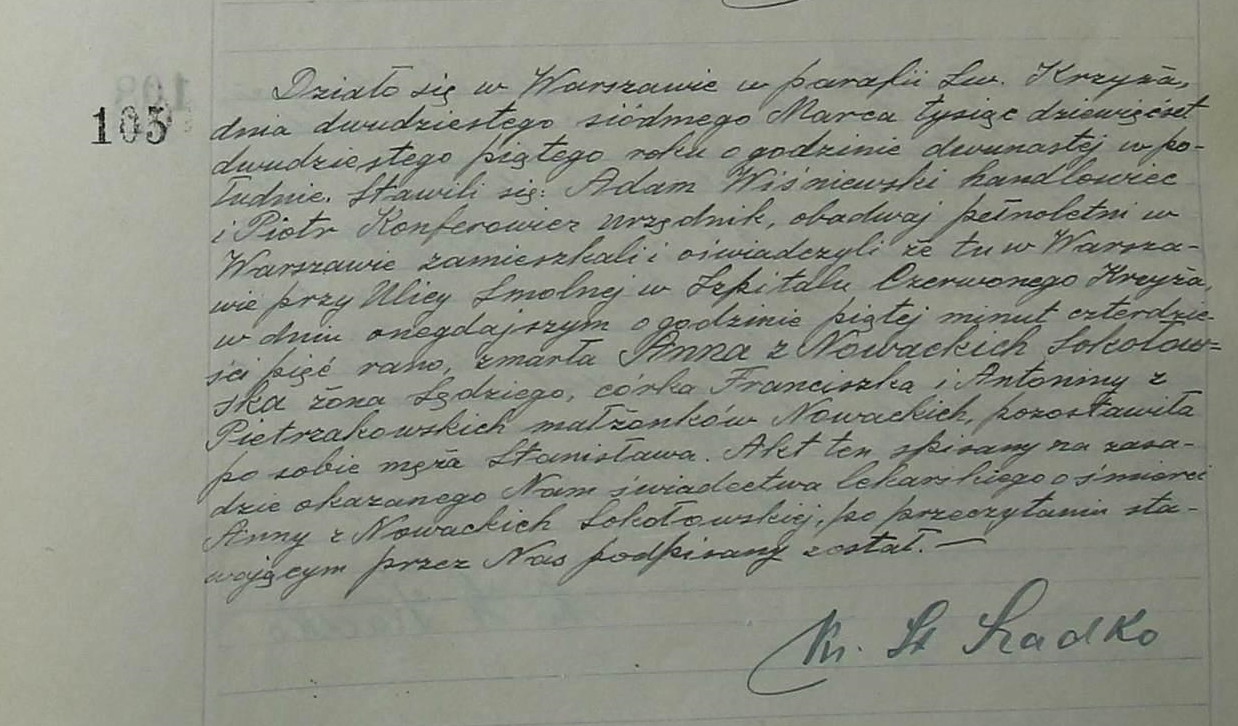 Działo się w Warszawie w parafii Św. Krzyża,
105
dnia dwudziestego siódmego Marca tysiąc dziewięćset
dwudziestego piątego roku o godzinie dwunastej w po-
łudnie. Stawili się: Adam Wiśniewski handlowiec
i Piotr Konferowicz urzędnik, obadwaj pełnoletni w
Warszawie zamieszkali i oświadczyli że tu w Warsza-
wie przy Ulicy Smolnej w Szpitalu Czerwonego Krzyża,
w dniu onegdajszym o godzinie piątej minut czterdzie-
ści pięć rano, zmarła Anna z Nowackich Sokołow=
ska żona Sędziego, córka Franciszka i Antoniny z
Pietrzakowskich małżonków Nowackich, pozostawiła
po sobie męża Stanisława. Akt ten spisany na zasa-
dzie okazanego Nam świadectwa lekarskiego o śmierci
Anny z Nowackich Sokołowskiej, po przeczytaniu sta-
wającym przez Nas podpisany został. —
Ks. St